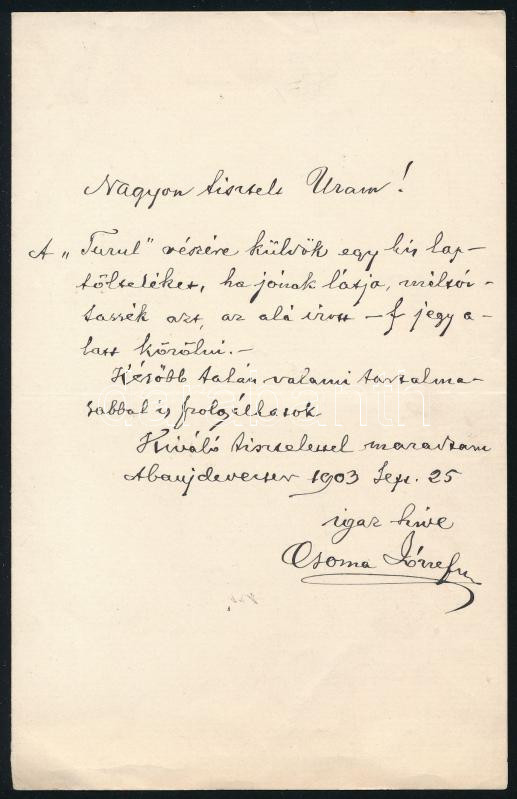 Nagyon tisztelt Uram!
A „Turul" részére küldök egy kis lap-
tölteléket, ha jónak látja, méltóz-
tassék azt, az alá írott —f jegy a-
latt közölni.—
Később talán valami tartalma-
sabbal is szolgálhatok
Kiváló tisztelettel maradtam
Abaujdevecser 1903 Sept. 25
igaz híve
Csoma József